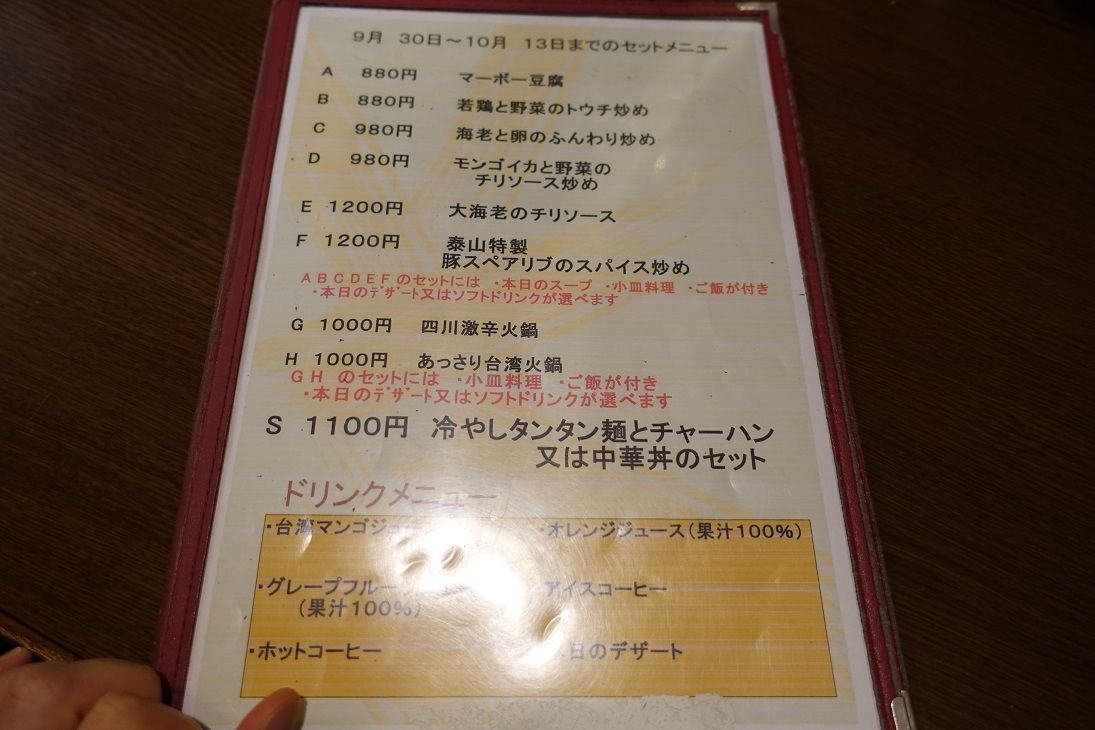 9月 30日～10月 13日までのセットメニュー
A 880円 マーボー豆腐
B 880円 若鶏と野菜のトウチ炒め
C 980円 海老と卵のふんわり炒め
D 980円 モンゴイカと野菜の
チリソース炒め
E 1200円 大海老のチリソース
F 1200円 泰山特製
豚スペアリブのスパイス炒め
ABCDEFのセットには ・本日のスープ ・小皿料理 ・ご飯が付き
・本日のﾃﾞｻﾞｰﾄ又はソフトドリンクが選べます
G 1000円 四川激辛火鍋
H 1000円 あっさり台湾火鍋
GH のセットには ・小皿料理 ・ご飯が付き
・本日のﾃﾞｻﾞｰﾄ又はソフトドリンクが選べます
S 1100円 冷やしタンタン麺とチャーハン
又は中華丼のセット
ドリンクメニュー
・台湾マンゴジュー ・オレンジジュース(果汁100%)
・グレープフルー アイスコーヒー
(果汁100%)
・ホットコーヒー 日のデザート